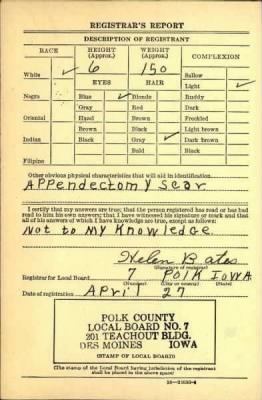 REGISTRAR'S REPORT
DESCRIPTION OF REGISTRANT
RACE HEIGHT (Approx.) WEIGHT (Approx.) COMPLEXION
6 150 Sallow
White ✓ Light ✓
EYES HAIR
Negro Blue ✓ Blonde Ruddy
Gray Red Dark
Oriental Hazel Brown Freckled
Brown Black Light brown
Indian Black Gray ✓ Dark brown
Bald Black
Filipino
Other obvious physical characteristics that will aid in identification
APPendectomy Scar
I certify that my answers are true; that the person registered has read or has had
read to him his own answers; that I have witnessed his signature or mark and that
all of his answers of which I have knowledge are true, except as follows:
Not to My Knowledge
Helen Bates
(Signature of registrar)
Registrar for Local Board 7 POLK IOWA
(Number) (City or county) (State)
Date of registration APril 27
POLK COUNTY
LOCAL BOARD NO. 7
201 TEACHOUT BLDG.
DES MOINES IOWA
(STAMP OF LOCAL BOARD)
(The stamp of the Local Board having jurisdiction of the registrant
shall be placed in the above space)